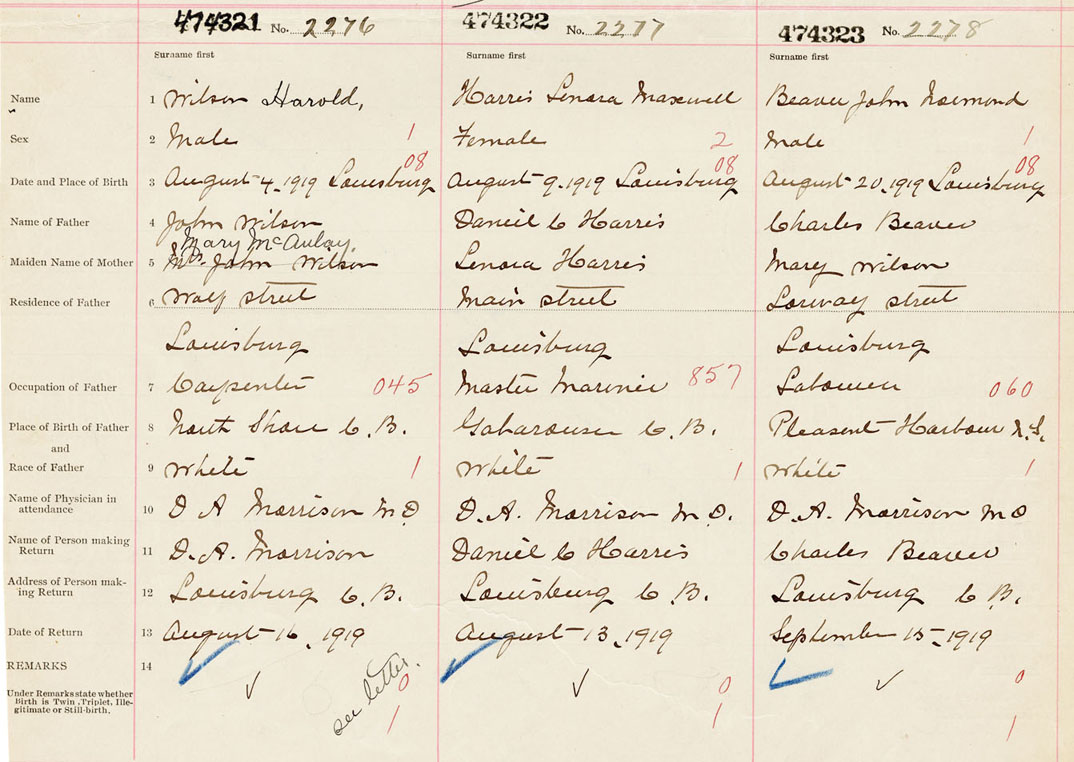 474321 No. 2276 474322 No. 2277 474323 No. 2278
Surname first Surname first Surname first
Name 1 Wilson Harold, Harris Lenora Maxwell Beaver John Rosmond
Sex 2 Male 1 Female 2 Male 1
08 08 08
Date and Place of Birth 3 August 4, 1919 Louisburg August 9. 1919 Louisburg August 20, 1919 Louisburg
Name of Father 4 John Wilson Daniel C Harris Charles Beaver
Mary McAulay.
Maiden Name of Mother 5 Mrs. John Wilson Lenora Harris Mary Wilson
Residence of Father 6 Wolf street Main street Lorway street
Louisburg Louisburg Louisburg
Occupation of Father 7 Carpenter 045 Master Mariner 857 Labourer 060
Place of Birth of Father 8 North Shore C.B. Gabarouse C.B. Pleasent Harbour N.S.
and
Race of Father 9 White 1 White 1 White 1
Name of Physician in
attendance 10 D A Morrison MD D.A. Morrison M.D. D.A. Morrison MD
Name of Person making
Return 11 D.A. Morrison Daniel C Harris Charles Beaver
Address of Person mak-
ing Return 12 Louisburg C.B. Louisburg C.B. Louisburg C B.
Date of Return 13 August 16, 1919 August 13, 1919 September 15, 1919
REMARKS 14
Under Remarks state whether
Birth is Twin, Triplet, Ille-
gitimate or Still-birth.
see letter.
0 0 0
1 1 1